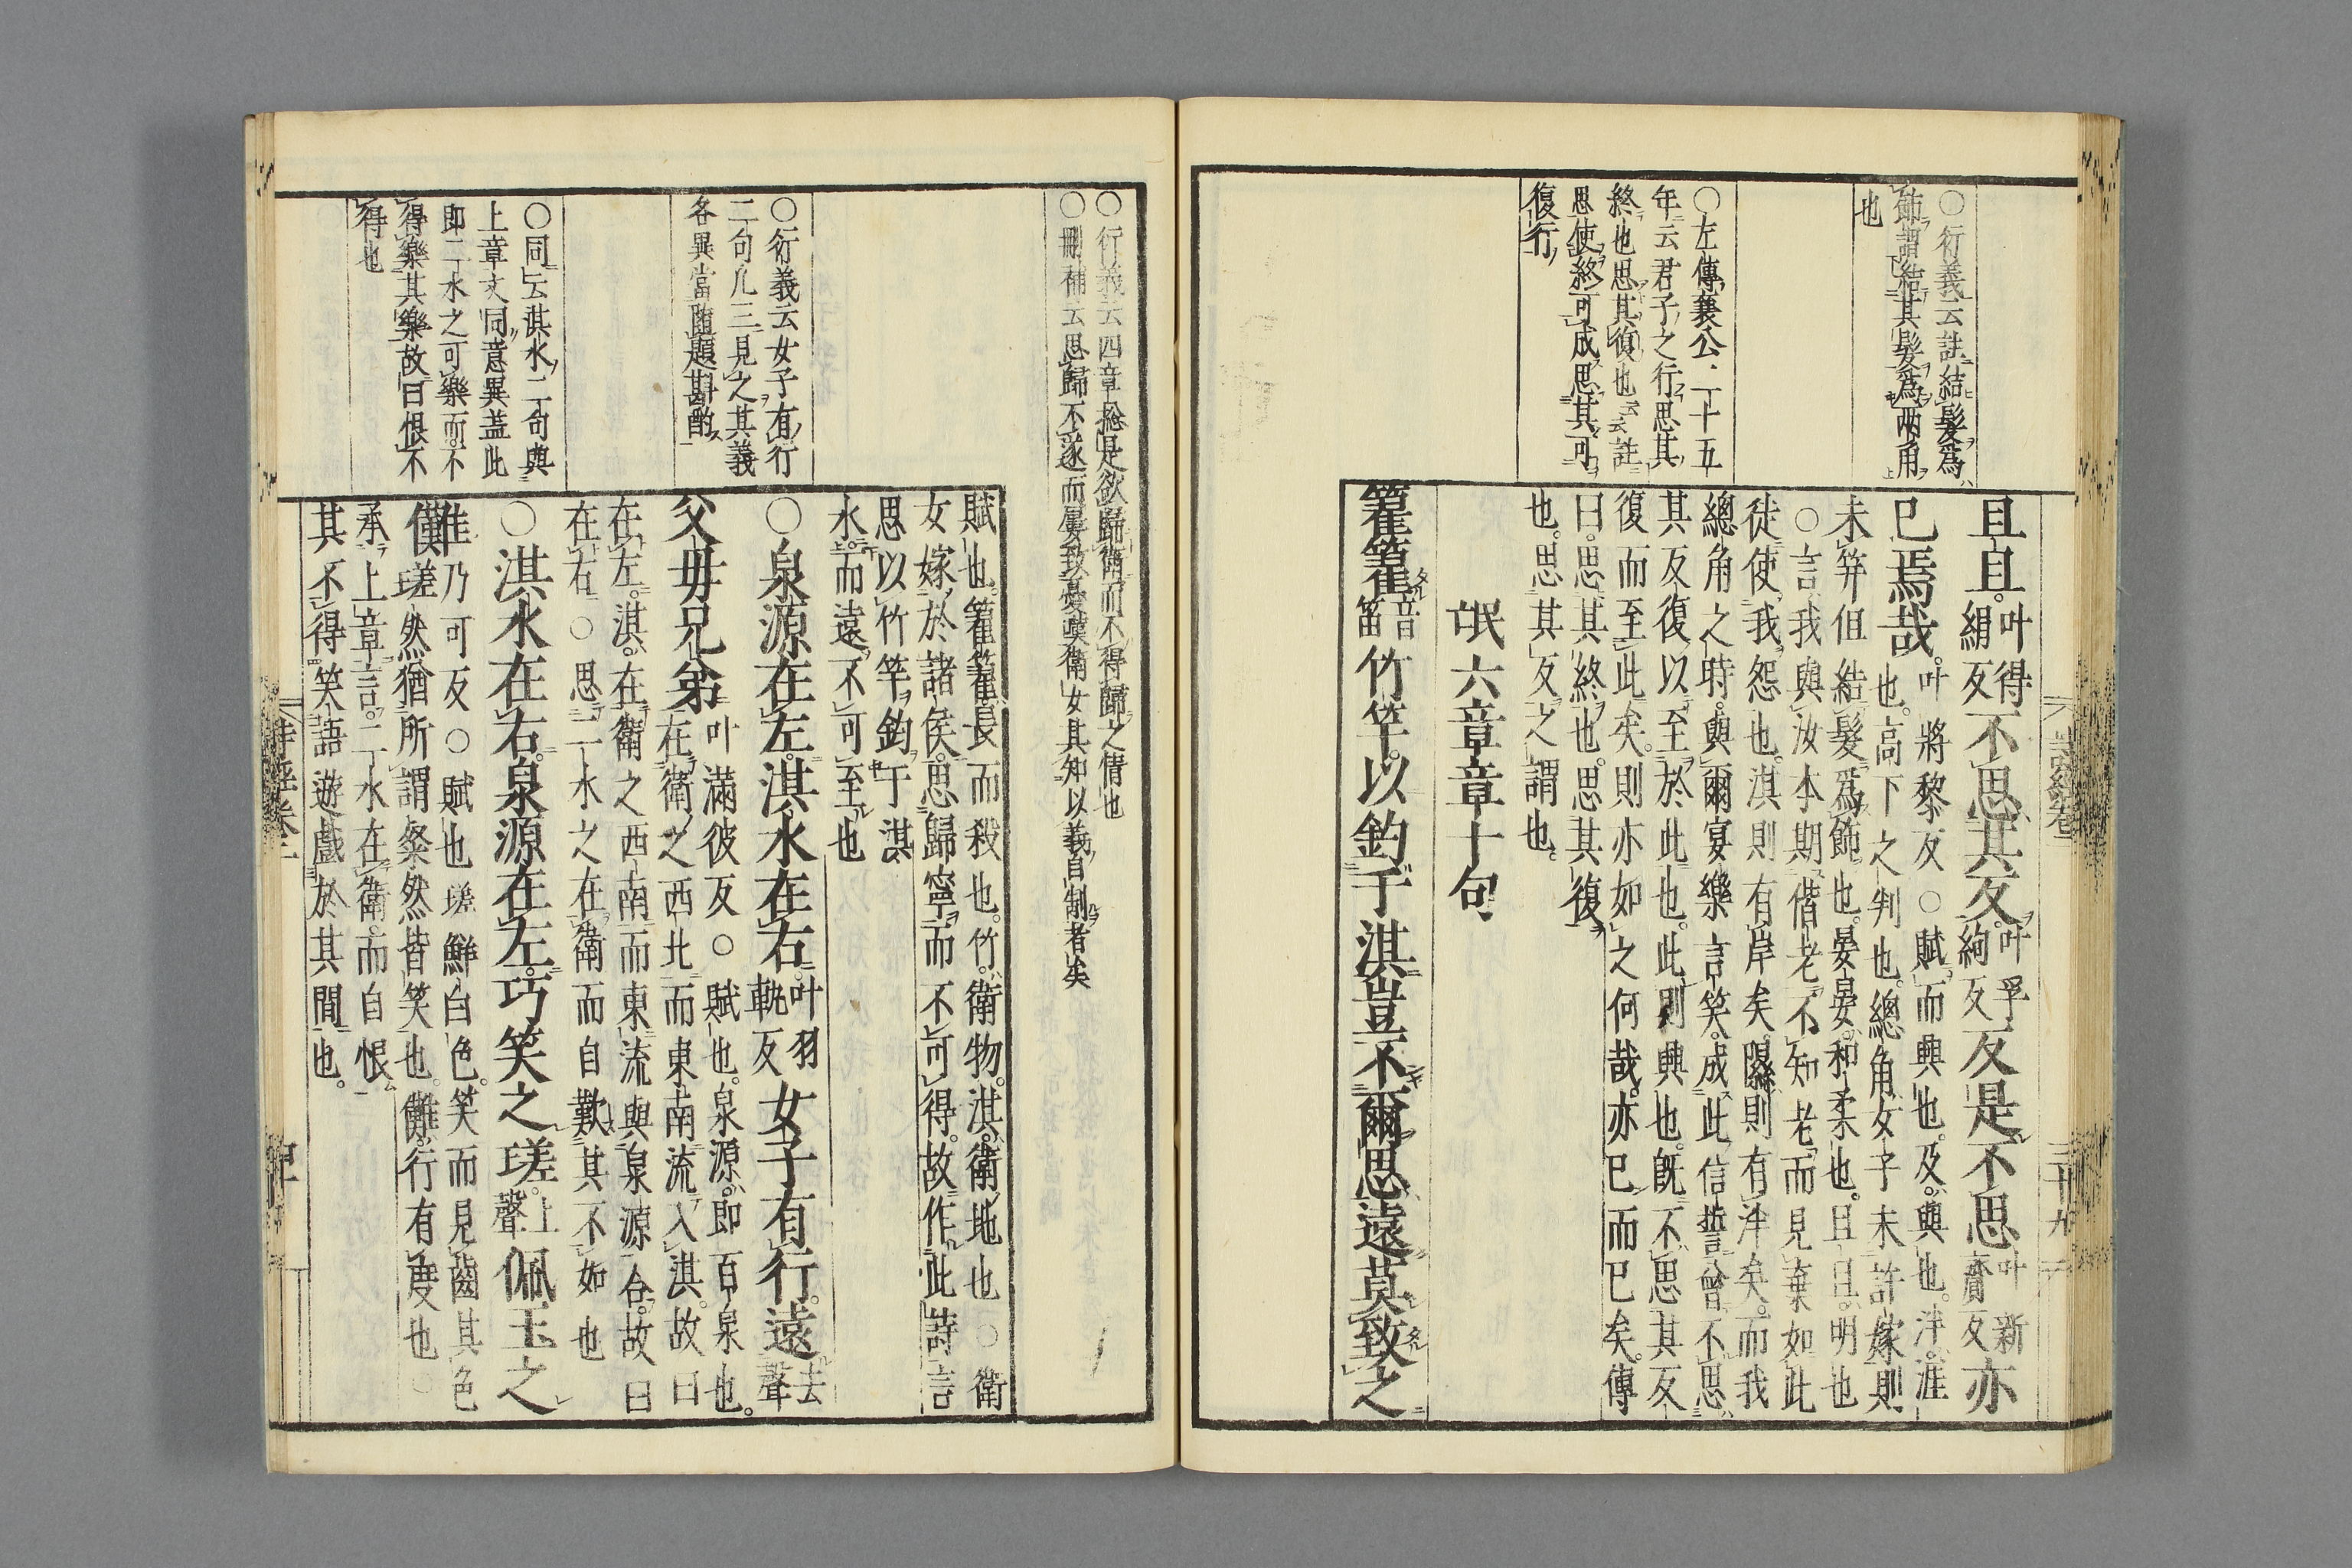 ○衍義云註結髮爲
飾謂結其髮爲兩角
也
○左傳襄公二十五
年云君子之行思其
終也思其復也云云註
思使終可成思其可
復行
且旦叶得絹反不思其反叶孚絢反反是不思叶新齎反亦
已焉哉叶將黎反○賦而興也及與也泮涯
也高下之判也總角女子未許嫁則
未笄但結髮爲飾也晏晏和柔也旦旦明也
○言我與汝本期偕老不知老而見棄如此
徒使我怨也淇則有岸矣隰則有泮矣而我
總角之時與爾宴樂言笑成此信誓曾不思
其反復以至於此也此則興也旣不思其反
復而至此矣則亦如之何哉亦已而已矣傳
曰思其終也思其復
也思其反之謂也
氓六章章十句
籊籊音笛竹竿以釣于淇豈不爾思遠莫致之
○衍義云四章捴是欲歸衛而不得歸之情也
○刪補云思歸不遂而屢致憂嘆衛女其知以義自制者矣
賦也籊籊長而殺也竹衛物淇衛地也○衛
女嫁於諸侯思歸寧而不可得故作此詩言
思以竹竿釣于淇
水而遠不可至也
○泉源在左淇水在右叶羽軌反女子有行遠去聲
父母兄弟叶滿彼反○賦也泉源即百泉也
在衛之西北而東南流入淇故曰
在左淇在衛之西南而東流與泉源合故曰
在右○思二水之在衛而自歎其不如也
○淇水在右泉源在左巧笑之瑳上聲佩玉之
儺乃可反○賦也瑳鮮白色笑而見齒其色
瑳然猶所謂粲然皆笑也儺行有度也○
承上章言二水在衛而自恨
其不得笑語遊戲於其間也
○衍義云女子有行
二句凡三見之其義
各異當隨題斟酌
○同云淇水二句與
上章文同意異蓋此
即二水之可樂而不
得樂其樂故曰恨不
得也